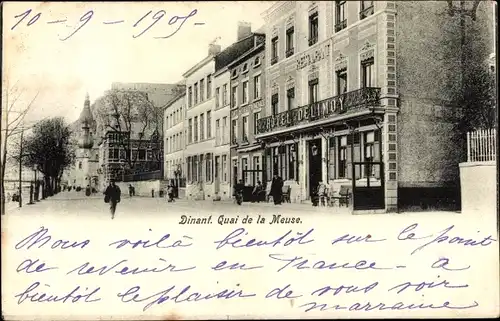 10-9-1905-
RESTAURANT
HÔTEL DELIMOY
Dinant. Quai de la Meuse.
Nous voilà bientôt sur le point
de revenir en France - à
bientôt le plaisir de vous voir
marraine